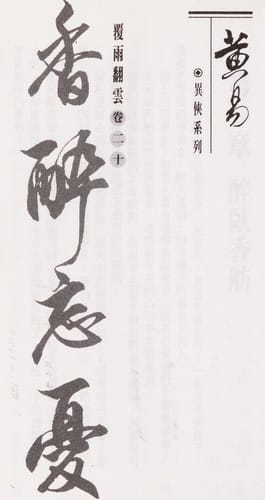 黃易
異俠系列
覆雨翻雲卷二十
香醉忘憂